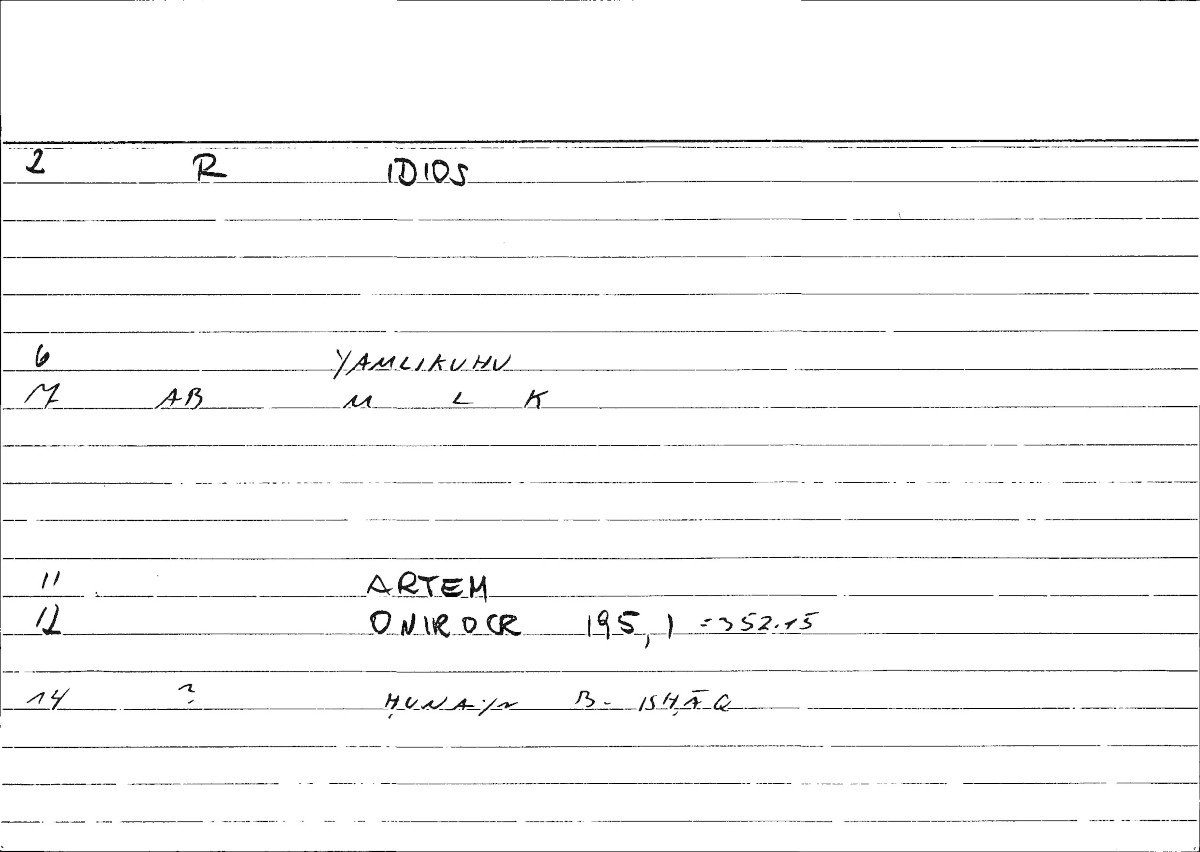 2 R IDIOS
6 YAMLIKUHU
7 AB M L K
11 ARTEM
12 ONIROCR 195,1 =352.15
14 ? ḤUNAYN B. ISḤĀQ